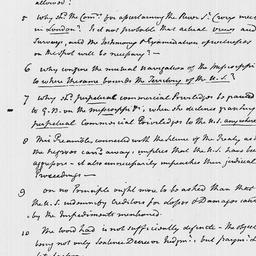 allowed?
5 Why shd. the Comrs. for ascertaining the River St. Croix meet
in London? Is it not probable that actual views and
Surveys, and the testimony & Examination of witnesses
on the spot will be necessary? —
6 Why confine the mutual navigation of the Mississippi
to where the same bounds the Territory of the U.S.?
7 Why shd. perpetual commercial Privileges be granted
to G.B. on the Mississippi &c., when she declines granting
perpetual Commercial Privileges to the U.S. anywhere
8 This Preamble, connected with the silence of the Treaty as to
the negroes carrd. away, implies that the U.S. have been
aggressors — it also unnecessarily impeaches their judicial
Proceedings —
9 on no Principle ought more to be asked than that
the U.S. indemnify Creditors for losses & Damages caused
by the Impediments mentioned.
10 The word had is not sufficiently definite — the object
being not only